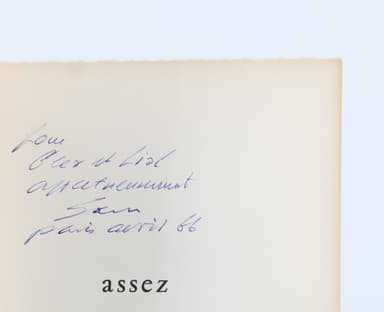 pour
Alex et Lisl
affectueusement
Sam
Paris avril 66
assez